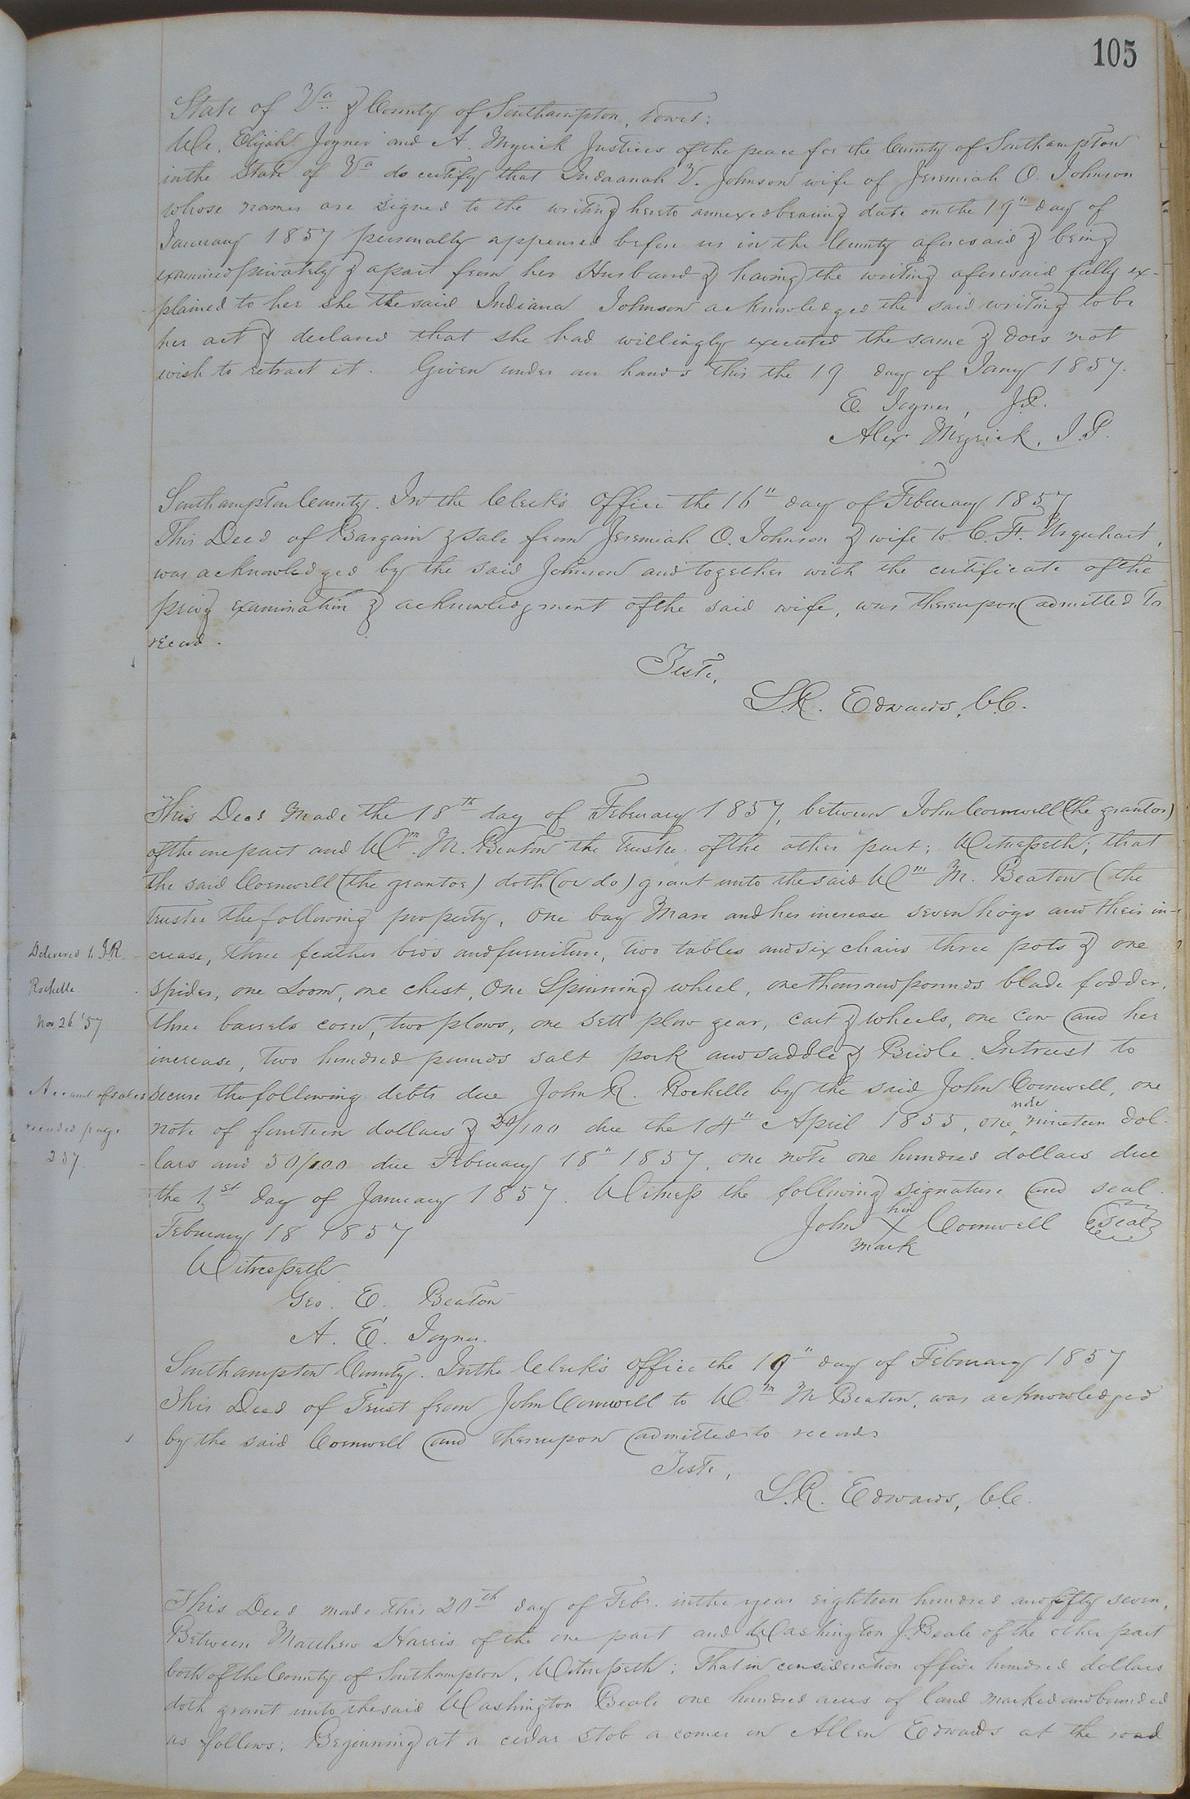 105
State of Va & County of Southampton, towit:
We, Elijah Joyner and A. Myrick Justices of the peace for the County of Southampton
in the State of Va do certify that Indaanah V. Johnson wife of Jeremiah O. Johnson
whose names are signed to the writing hereto annexed bearing date on the 19th day of
January 1857 personally appeared before us in the County aforesaid & being
examined privately & apart from her Husband & having the writing aforesaid fully ex-
plained to her she the said Indiana Johnson acknowledged the said writing to be
her act & declared that she had willingly executed the same & does not
wish to retract it. Given under our hands this the 19 day of Jany 1857.
E. Joyner, J.P.
Alex Myrick, J.P.
Southampton County. In the Clerk's office the 16" day of February 1857
This Deed of Bargain & Sale from Jeremiah O. Johnson & wife to C. F. Urquhart,
was acknowledged by the said Johnson and together with the certificate of the
privy examination & acknowledgment of the said wife, was thereupon admitted to
record.
Teste,
L.R. Edwards, C.C.
This Deed Made the 18th day of February 1857, between John Cornwell (the grantor)
of the one part and Wm. M. Beaton the Trustee of the other part; Witnesseth; that
the said Cornwell (the grantor) doth (or do) grant unto the said Wm M. Beaton (the
trustee the following property, One bay Mare and her increase seven hogs and their in-
crease, three feather beds and furniture, two tables and six chairs three pots & one
Spider, one Loom, one chest, One Spinning wheel, one thousand pounds blade fodder,
three barrels corn, two plows, one sett plow gear, cart & wheels, one Cow and her
increase, two hundred pounds salt pork and saddle & Bridle. In trust to
secure the following debts due John R. Rochelle by the said John Cornwell, one
note of fourteen dollars & 30/100 due the 14" April 1855, one note nineteen dol-
lars and 50/100 due February 18" 1857, one note one hundred dollars due
the 1st day of January 1857. Witness the following signature and seal
February 18 1857
John his X mark Cornwell Seal
Delivered to J.R.
Rochelle
Nov 26 '57
Account of sales
recorded page
237
Witnesseth
Geo. E. Beaton
A. E. Joyner.
Southampton County. In the Clerk's office the 19" day of February 1857
This Deed of Trust from John Cornwell to Wm M Beaton, was acknowledged
by the said Cornwell and thereupon admitted to record
Teste,
L.R. Edwards, C.C.
This Deed made this 20th day of Feb. in the year eighteen hundred and fifty seven,
Between Matthew Harris of the one part and Washington J. Beale of the other part
both of the County of Southampton, Witnesseth: That in consideration of five hundred dollars
doth grant unto the said Washington Beale one hundred acres of land marked and bounded
as follows: Beginning at a cedar stob a corner in Allen Edwards at the road